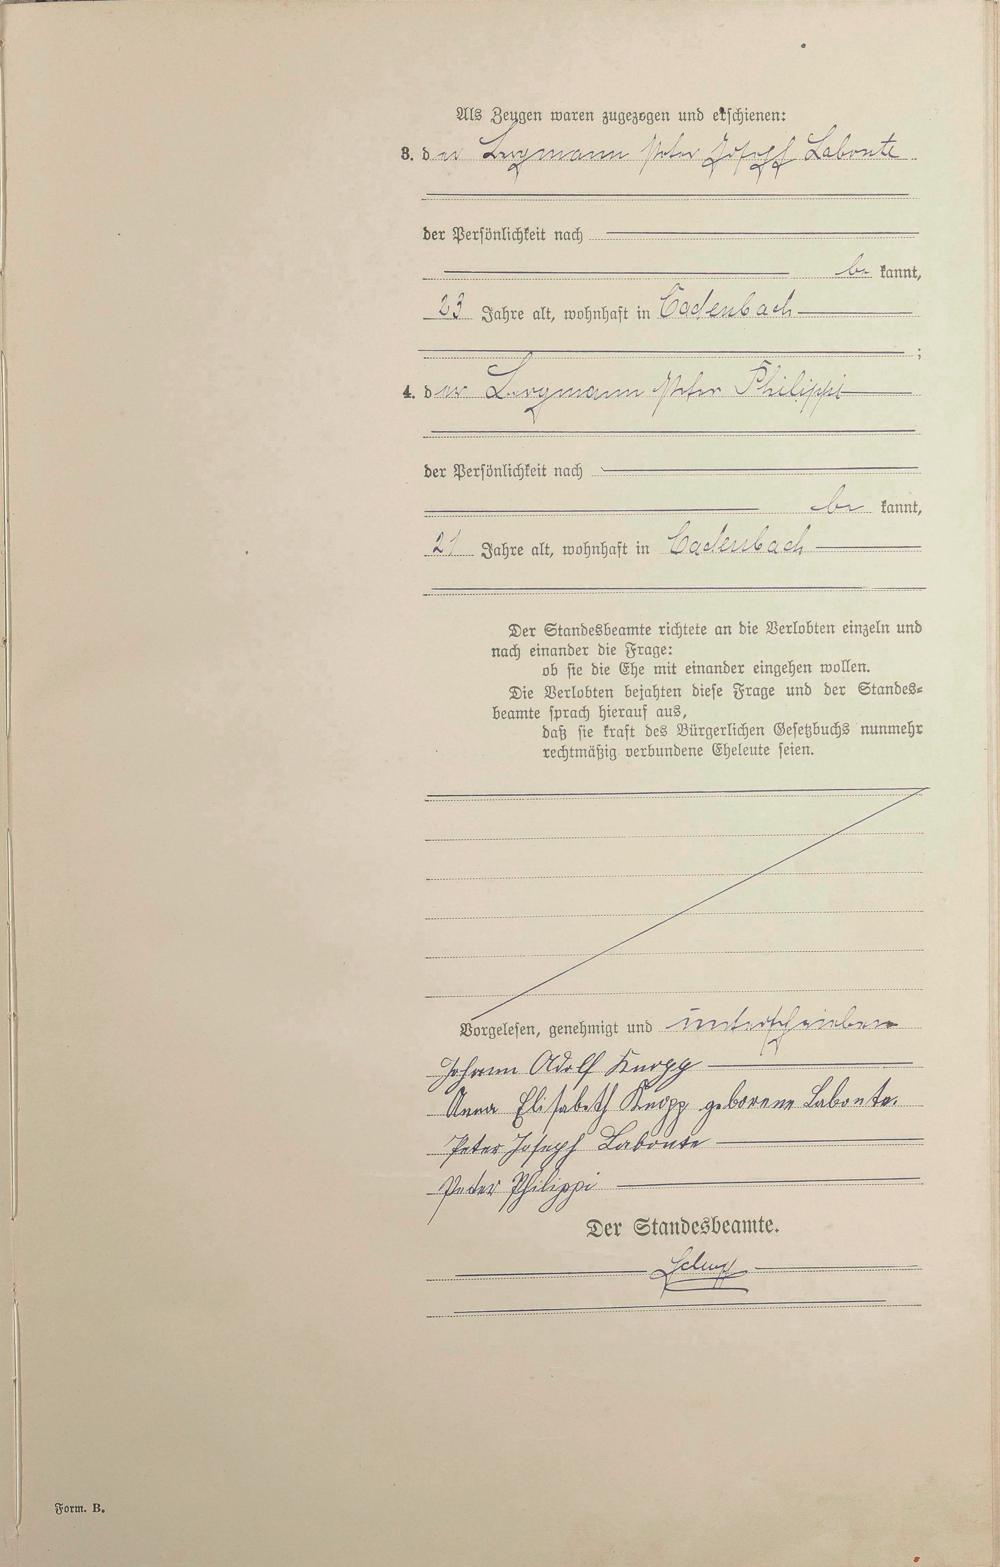 Als Zeugen waren zugezogen und erschienen:
3. der Bergmann Peter Josef Labonte
der Persönlichkeit nach
be kannt,
23 Jahre alt, wohnhaft in Cadenbach
;
4. der Bergmann Peter Philippi
der Persönlichkeit nach
be kannt,
21 Jahre alt, wohnhaft in Cadenbach
Der Standesbeamte richtete an die Verlobten einzeln und
nach einander die Frage:
ob sie die Ehe mit einander eingehen wollen.
Die Verlobten bejahten diese Frage und der Standes-
beamte sprach hierauf aus,
daß sie kraft des Bürgerlichen Gesetzbuchs nunmehr
rechtmäßig verbundene Eheleute seien.
Vorgelesen, genehmigt und unterschrieben
Johann Adolf Knopp
Anna Elisabeth Knopp geborene Labonte.
Peter Joseph Labonte
Peter Philippi
Der Standesbeamte.
Form. B.